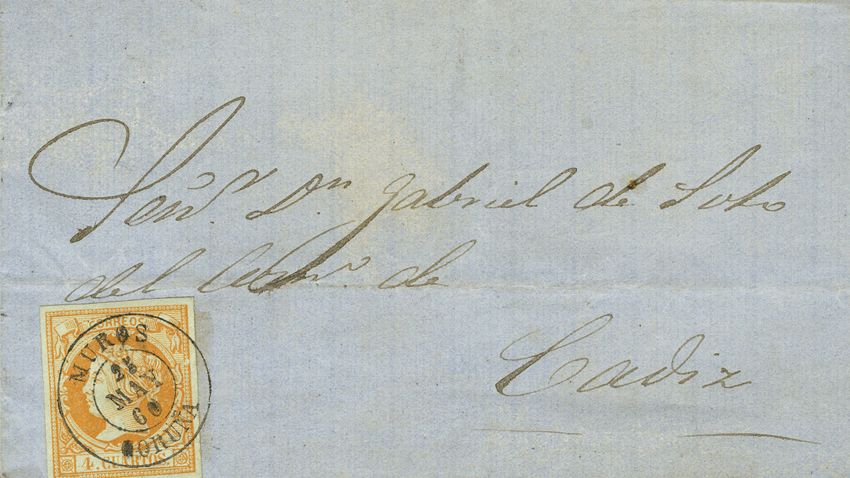 Señʳ Dⁿ Gabriel de Soto
del Comº. de
Cadiz
CORREOS
MUROS
25
MAY
60
CORUÑA
4. CUARTOS.